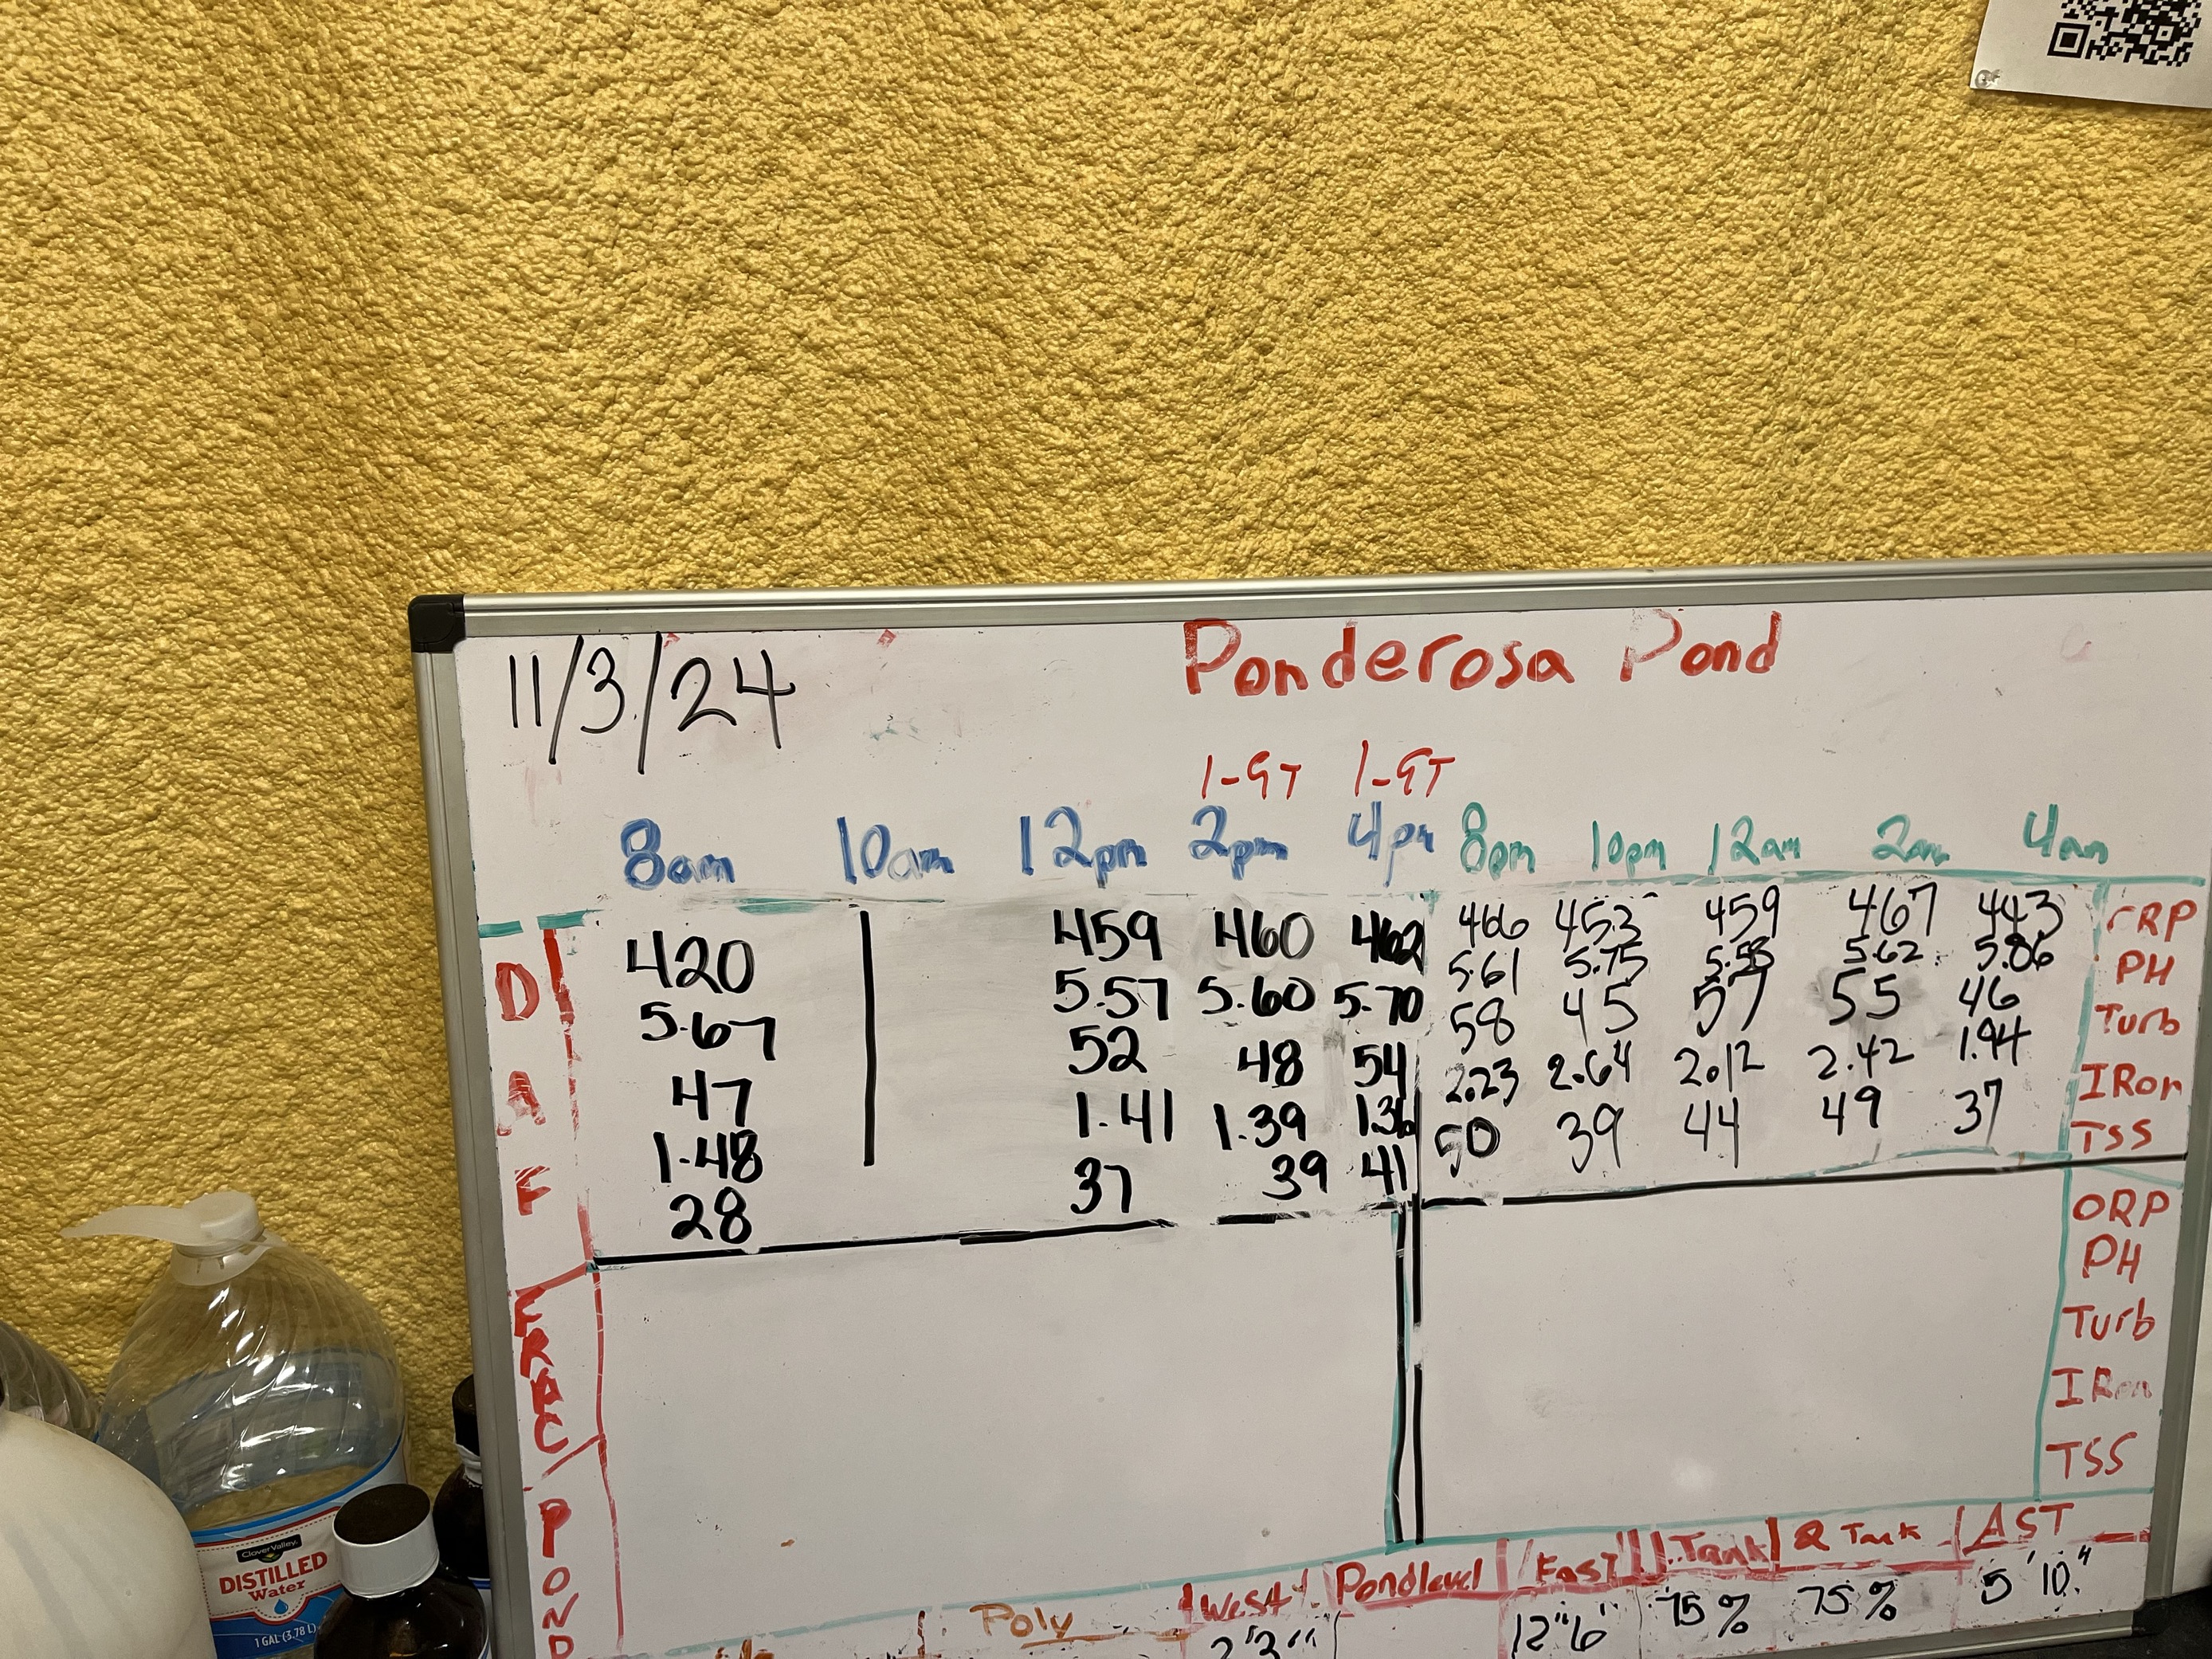 11/3/24 Ponderosa Pond
1-GT 1-GT
8am 10am 12pm 2pm 4pm 8pm 10pm 12am 2am 4am
420 459 460 462 466 453 459 467 443 ORP
5.67 5.57 5.60 5.70 5.61 5.75 5.58 5.62 5.86 PH
47 52 48 54 58 45 57 55 46 Turb
1.48 1.41 1.39 1.36 2.23 2.64 2.12 2.42 1.94 IRon
28 37 39 41 50 39 44 49 37 TSS
DAF
ORP
PH
Turb
IRon
TSS
FRAC/POND
Poly West Pondlevel East 1 Tank 2 Tank AST
2'3" 12"6' 75% 75% 5'10"
Clover Valley
DISTILLED
Water
1 GAL (3.78 L)